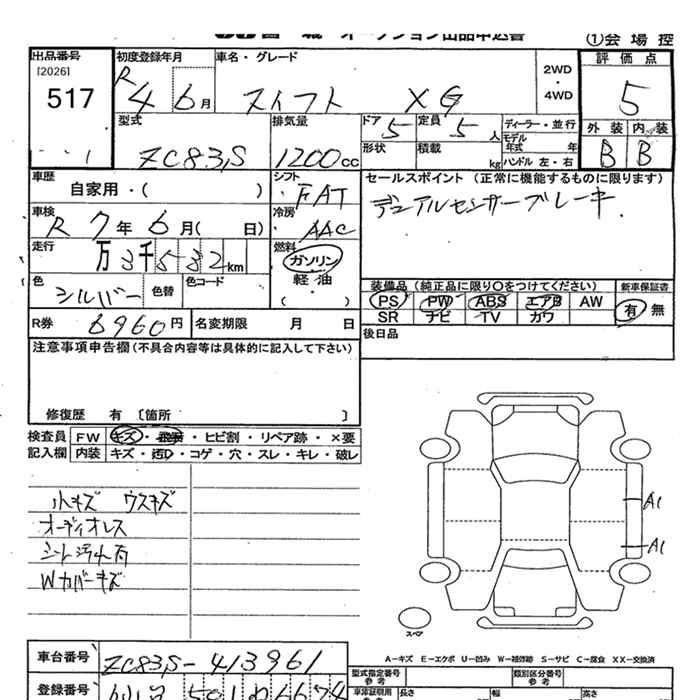 オークション出品申込書
①会場控
出品番号
[2026]
517
初度登録年月
R4 6月
車名・グレード
スイフト XG
2WD
・
4WD
評価点
5
外装 内装
B B
型式
ZC83S
排気量
1200cc
ドア 5
定員 5人
形状
積載 kg
ディーラー・並行
モデル年式 年
ハンドル 左・右
車歴
自家用・( )
シフト
FAT
セールスポイント (正常に機能するものに限ります)
デュアルセンサーブレーキ
車検
R7年6月( 日)
冷房
AAC
走行
万3千532km
燃料
ガソリン
軽・油
( )
色
シルバー
色替
色コード
装備品 (純正品に限り〇をつけてください)
新車保証書
PS PW ABS エアB AW
有 無
SR ナビ TV カワ
R券 8960円
名変期限 月 日
後日品
注意事項申告欄(不具合内容等は具体的に記入して下さい)
修復歴 有 〔箇所 〕
検査員 FW キズ・飛石・ヒビ割・リペア跡・×要
記入欄 内装 キズ・汚レ・コゲ・穴・スレ・キレ・破レ
小キズ ウスキズ
オーディオレス
シート汚れ有
Wカバーキズ
A1
A1
スペア
A-キズ E-エクボ U-凹み W-補修跡 S-サビ C-腐食 XX-交換済
車台番号
ZC83S-413961
型式指定番号
参考
類別区分番号
参考
登録番号
車庫証明用
参考
長さ
幅
高さ